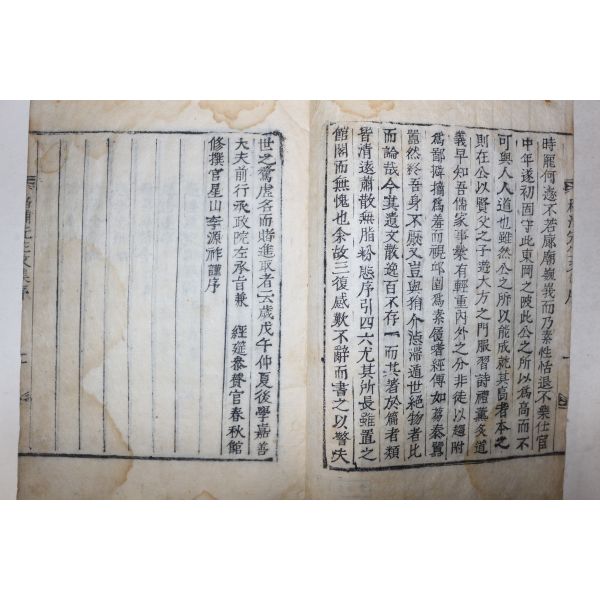 時罷何遽不若廊廟巍峩而乃素性恬退不樂仕官
中年遂初固守此東岡之陂此公之所以為高而不
可與人人道也雖然公之所以能成就其高者本之
則在公以賢父之子遊大方之門服習詩禮薰炙道
義早知吾儒家事業有輕重內外之分非徒以趨附
為鄙捭擠為羞而視邱園為素履嗜經傳如芻豢囂
囂然終吾身不厭又豈與狷介滯遁世絕物者比
而論哉今其遺文散逸百不存一而其著於篇者類
皆清遠蕭散無脂粉態序引四六尤其所長雖置之
館閣而無愧也余故三復感歎不辭而書之以警夫
世之騖虛名而賭進取者云歲戊午仲夏後學嘉善
大夫前行承政院左承旨兼 經筵參贊官春秋館
修撰官星山李源祚謹序